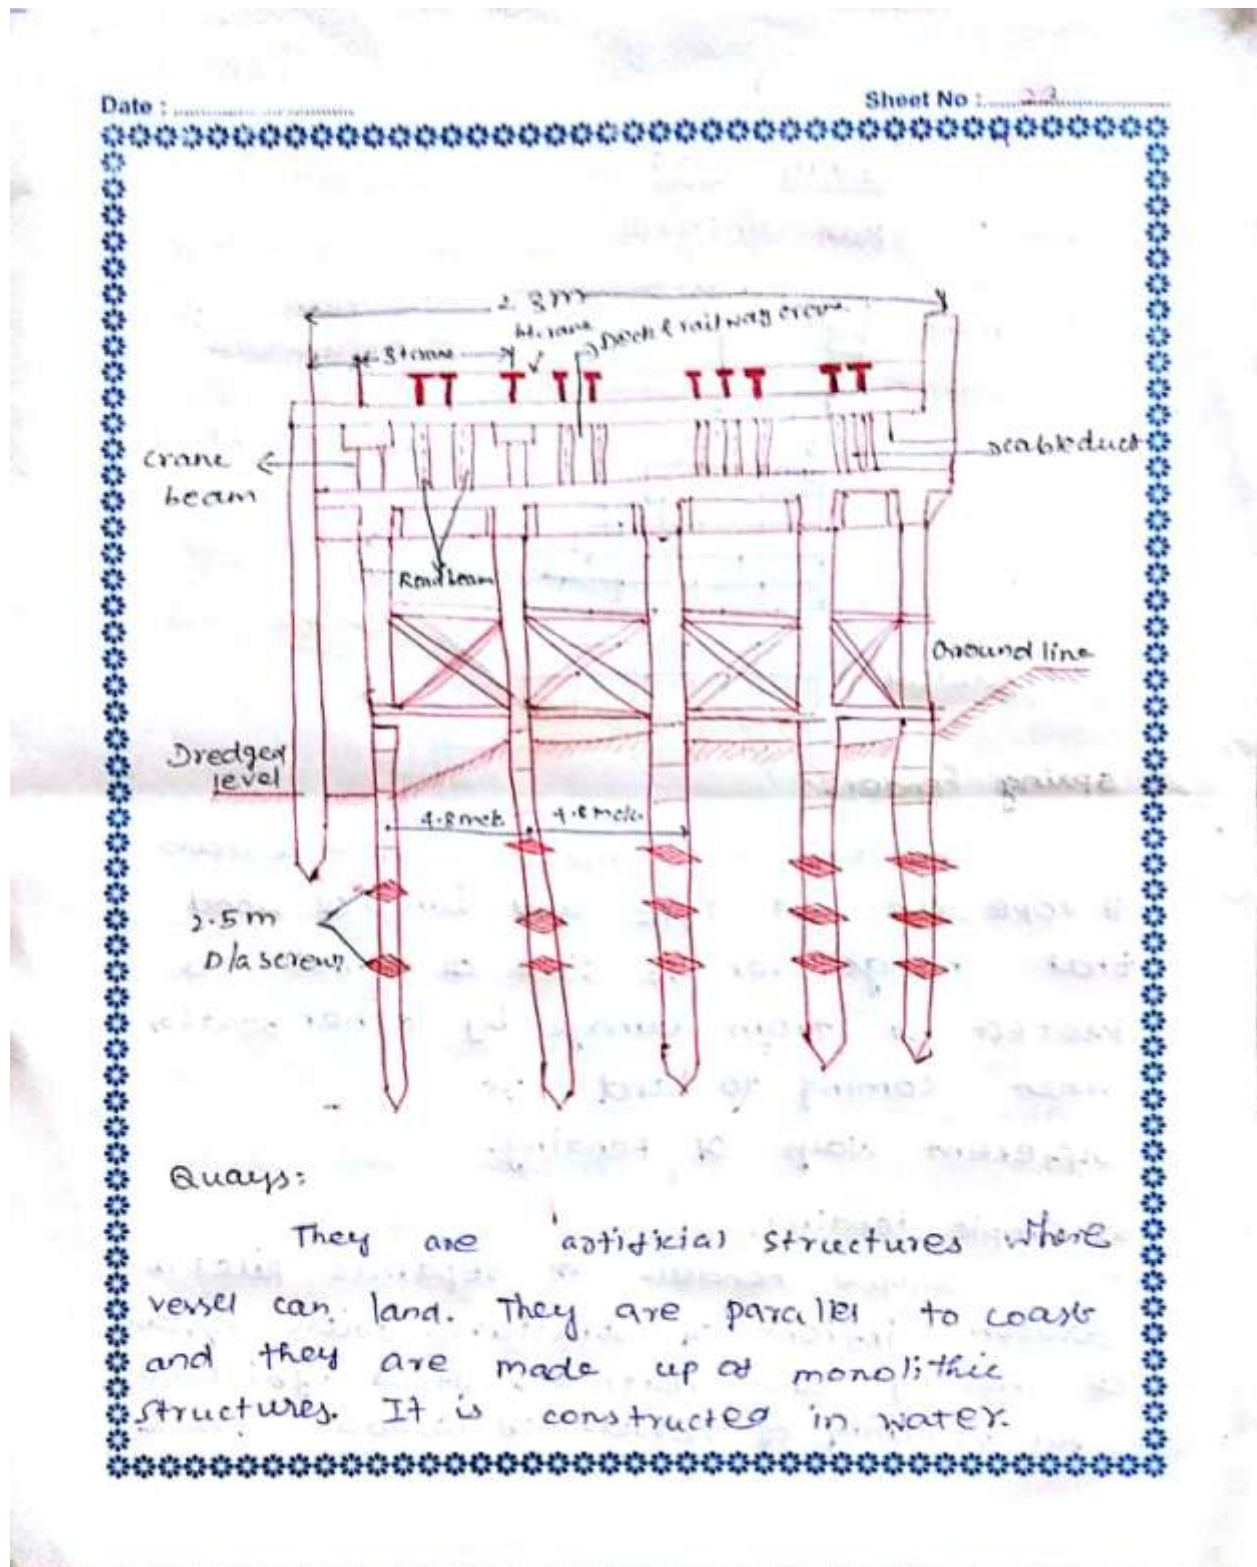 Date :
Sheet No :
2.3m
Dock & railway crane
Crane
beam
cable duct
Road beam
Ground line
Dredged
level
4.8 met. 4.8 met.
2.5m
Dia screws
Quays:
They are artificial structures where
vessel can land. They are parallel to coast
and they are made up of monolithic
structures. It is constructed in water.